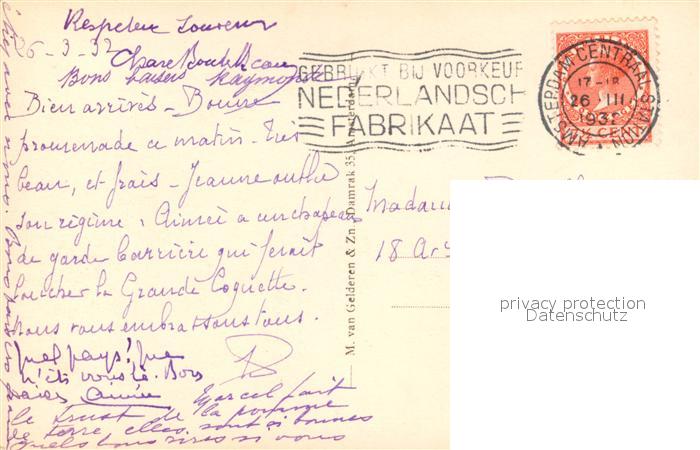 Respectueux Souvenir
26-3-32
Bons baisers Raymonde
Bien arrivés - Bonne
promenade ce matin - Très
beau, et frais - Jeanne oublie
son régime, Aimée a un chapeau
de garde barrière qui ferait
loucher la Grande Coquette.
Nous vous embrassons tous.
Quel pays! que
n'êtes vous là. Bons
baisers Aimée
Marcel fait
le trust de la pomme
de terre, elles sont si bonnes
si vous
GEBRUIKT BIJ VOORKEUR
NEDERLANDSCH
FABRIKAAT
AMSTERDAM CENTRAAL STATION
17-18
26 III
193
CENT
M. van Gelderen & Zn. Damrak 35, Amsterdam
Madame
18
privacy protection
Datenschutz